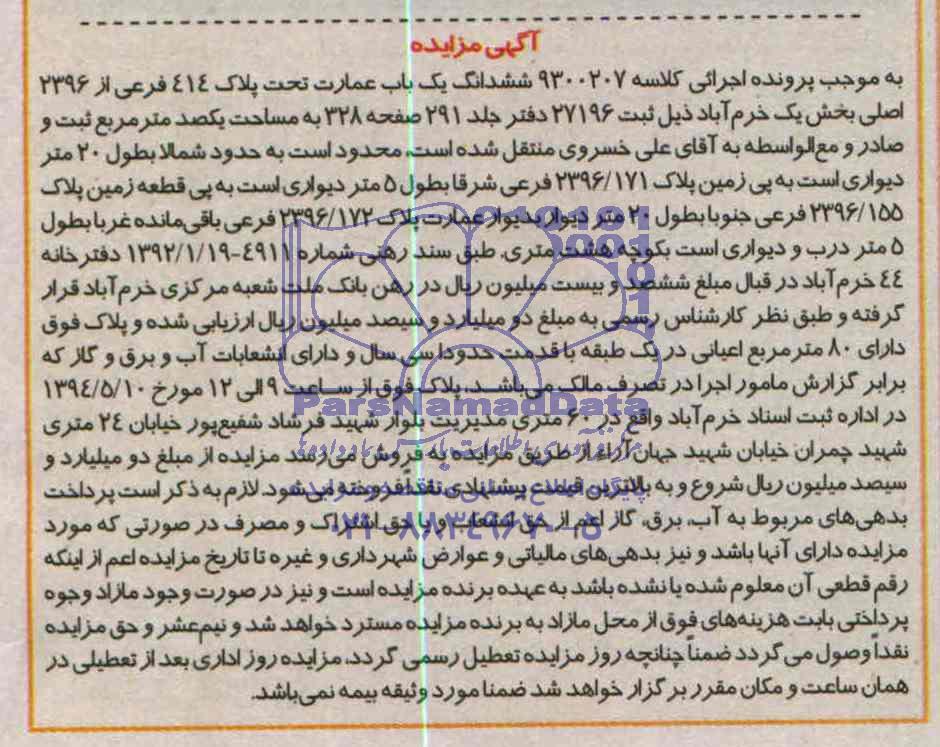 آگهی مزایده
به موجب پرونده اجرائی کلاسه ۹۳۰۰۲۰۷ ششدانگ یک باب عمارت تحت پلاک ٤١٤ فرعی از ۲۳۹۶
اصلی بخش یک خرم‌آباد ذیل ثبت ۲۷۱۹۶ دفتر جلد ۲۹۱ صفحه ۳۲۸ به مساحت یکصد مترمربع ثبت و
صادر و مع‌الواسطه به آقای علی خسروی منتقل شده است. محدود است به حدود شمالا بطول ۲۰ متر
دیواری است به پی زمین پلاک ۲۳۹۶/۱۷۱ فرعی شرقا بطول ۵ متر دیواری است به پی قطعه زمین پلاک
۲۳۹۶/۱۵۵ فرعی جنوبا بطول ۲۰ متر دیوار بدیوار عمارت پلاک ۲۳۹۶/۱۷۲ فرعی باقی‌مانده غربا بطول
۵ متر درب و دیواری است بکوچه هشت متری. طبق سند رهنی شماره ٤۹۱۱-۱۳۹۲/۱/۱۹ دفترخانه
٤٤ خرم‌آباد در قبال مبلغ ششصد و بیست میلیون ریال در رهن بانک ملت شعبه مرکزی خرم‌آباد قرار
گرفته و طبق نظر کارشناس رسمی به مبلغ دو میلیارد و سیصد میلیون ریال ارزیابی شده و پلاک فوق
دارای ۸۰ مترمربع اعیانی در یک طبقه با قدمت حدودا سی سال و دارای انشعابات آب و برق و گاز که
برابر گزارش مامور اجرا در تصرف مالک می‌باشد. پلاک فوق از ساعت ۹ الی ۱۲ مورخ ۱۳۹٤/۵/۱۰
در اداره ثبت اسناد خرم‌آباد واقع در ۶۰ متری مدیریت بلوار شهید فرشاد شفیع‌پور خیابان ۲٤ متری
شهید چمران خیابان شهید جهان‌آراء از طریق مزایده به فروش می‌رسد مزایده از مبلغ دو میلیارد و
سیصد میلیون ریال شروع و به بالاترین قیمت پیشنهادی نقدا فروخته می‌شود. لازم به ذکر است پرداخت
بدهی‌های مربوط به آب، برق، گاز اعم از حق انشعاب و یا حق اشتراک و مصرف در صورتی که مورد
مزایده دارای آنها باشد و نیز بدهی‌های مالیاتی و عوارض شهرداری و غیره تا تاریخ مزایده اعم از اینکه
رقم قطعی آن معلوم شده یا نشده باشد به عهده برنده مزایده است و نیز در صورت وجود مازاد وجوه
پرداختی بابت هزینه‌های فوق از محل مازاد به برنده مزایده مسترد خواهد شد و نیم‌عشر و حق مزایده
نقداً وصول می‌گردد ضمناً چنانچه روز مزایده تعطیل رسمی گردد، مزایده روز اداری بعد از تعطیلی در
همان ساعت و مکان مقرر برگزار خواهد شد ضمنا مورد وثیقه بیمه نمی‌باشد.
ParsNamadData